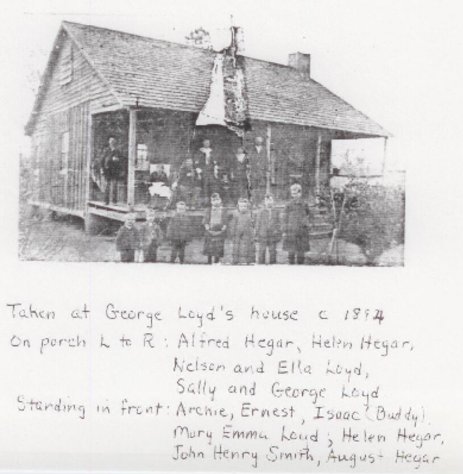 Taken at George Loyd's house c 1894
On porch L to R : Alfred Hegar, Helen Hegar,
Nelson and Ella Loyd,
Sally and George Loyd
Standing in front : Archie, Ernest, Isaac (Buddy),
Mary Emma Loyd, Helen Hegar,
John Henry Smith, August Hegar